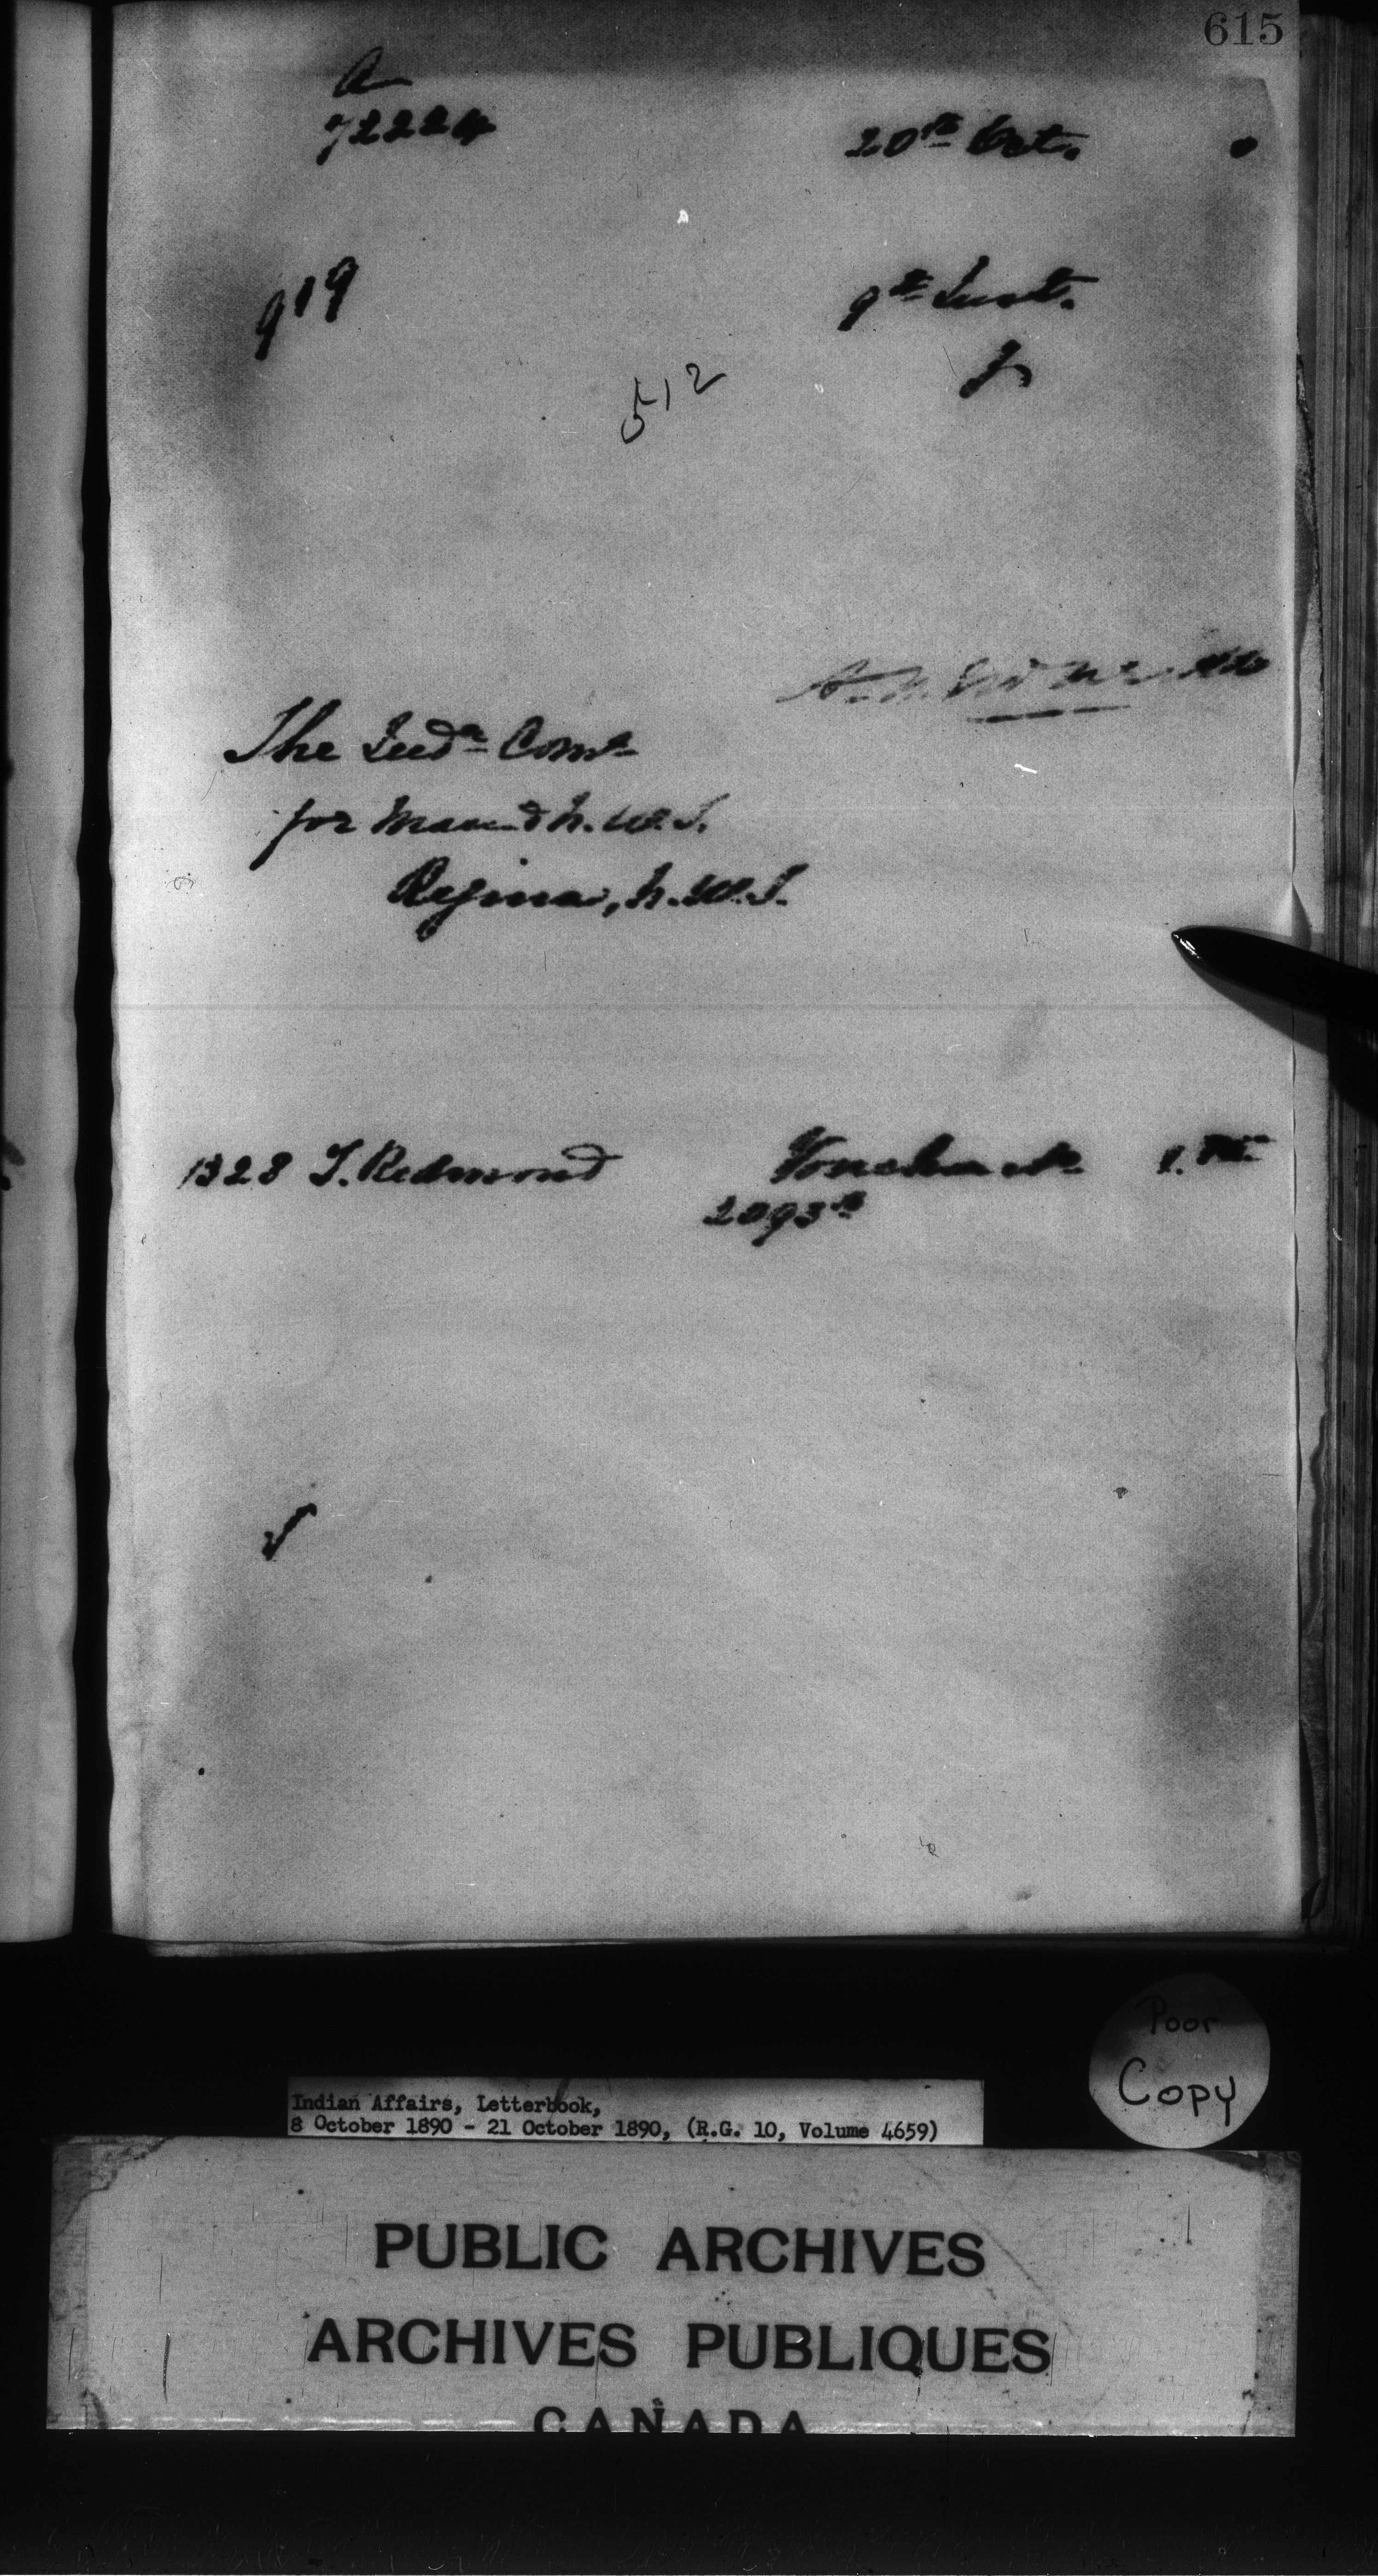 615
A
72224
20th Oct.
919
9th Inst.
512
The Indn Comr
for Man and N.W.T.
Regina, N.W.T.
1328 T. Redmond Voucher
2093
Poor
Copy
Indian Affairs, Letterbook,
8 October 1890 - 21 October 1890, (R.G. 10, Volume 4659)
PUBLIC ARCHIVES
ARCHIVES PUBLIQUES
CANADA